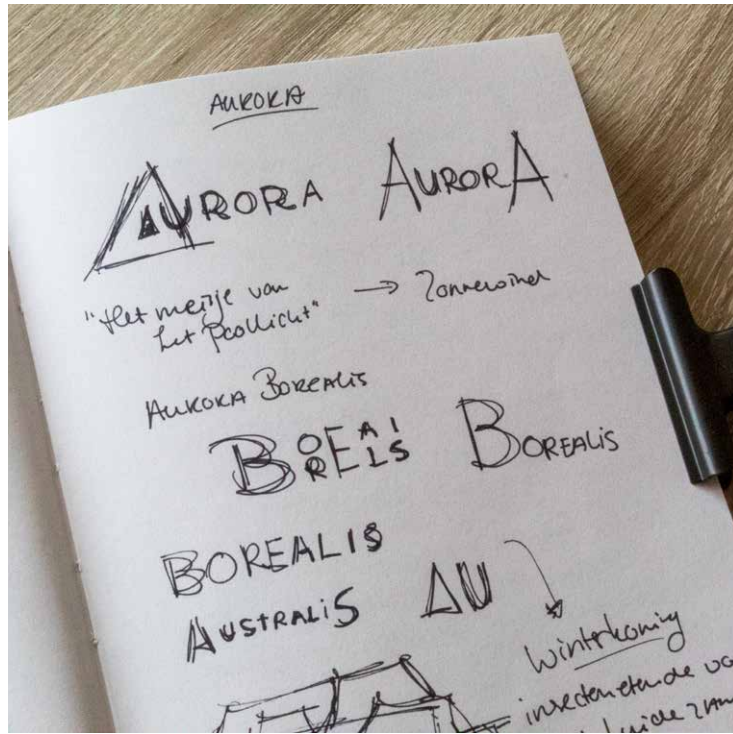 AURORA
AURORA AURORA
"Het meisje van → Zonnewind
het Poollicht"
AURORA BOREALIS
BOREALIS BOREALIS
BOREALIS
AUSTRALIS AU
Winterkoning
insectenetende